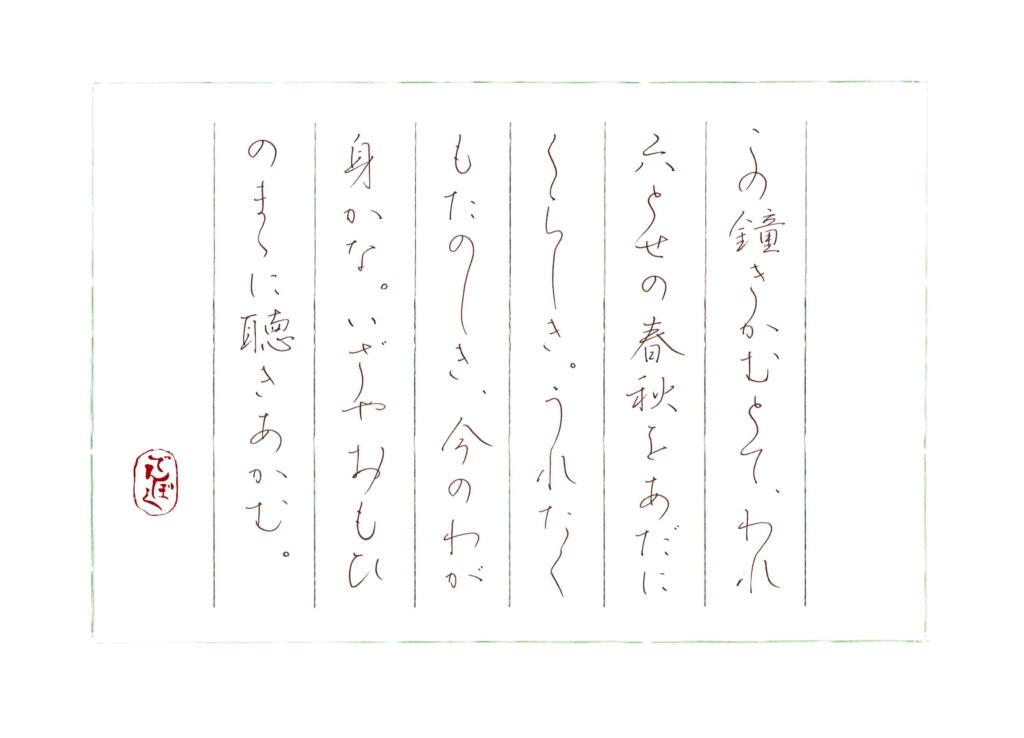 この鐘きかむとて、われ
六とせの春秋をあだに
くらしき。うれたく
もたのしき、今のわが
身かな。いざやおもひ
のまゝに聴きあかむ。
でんぼく